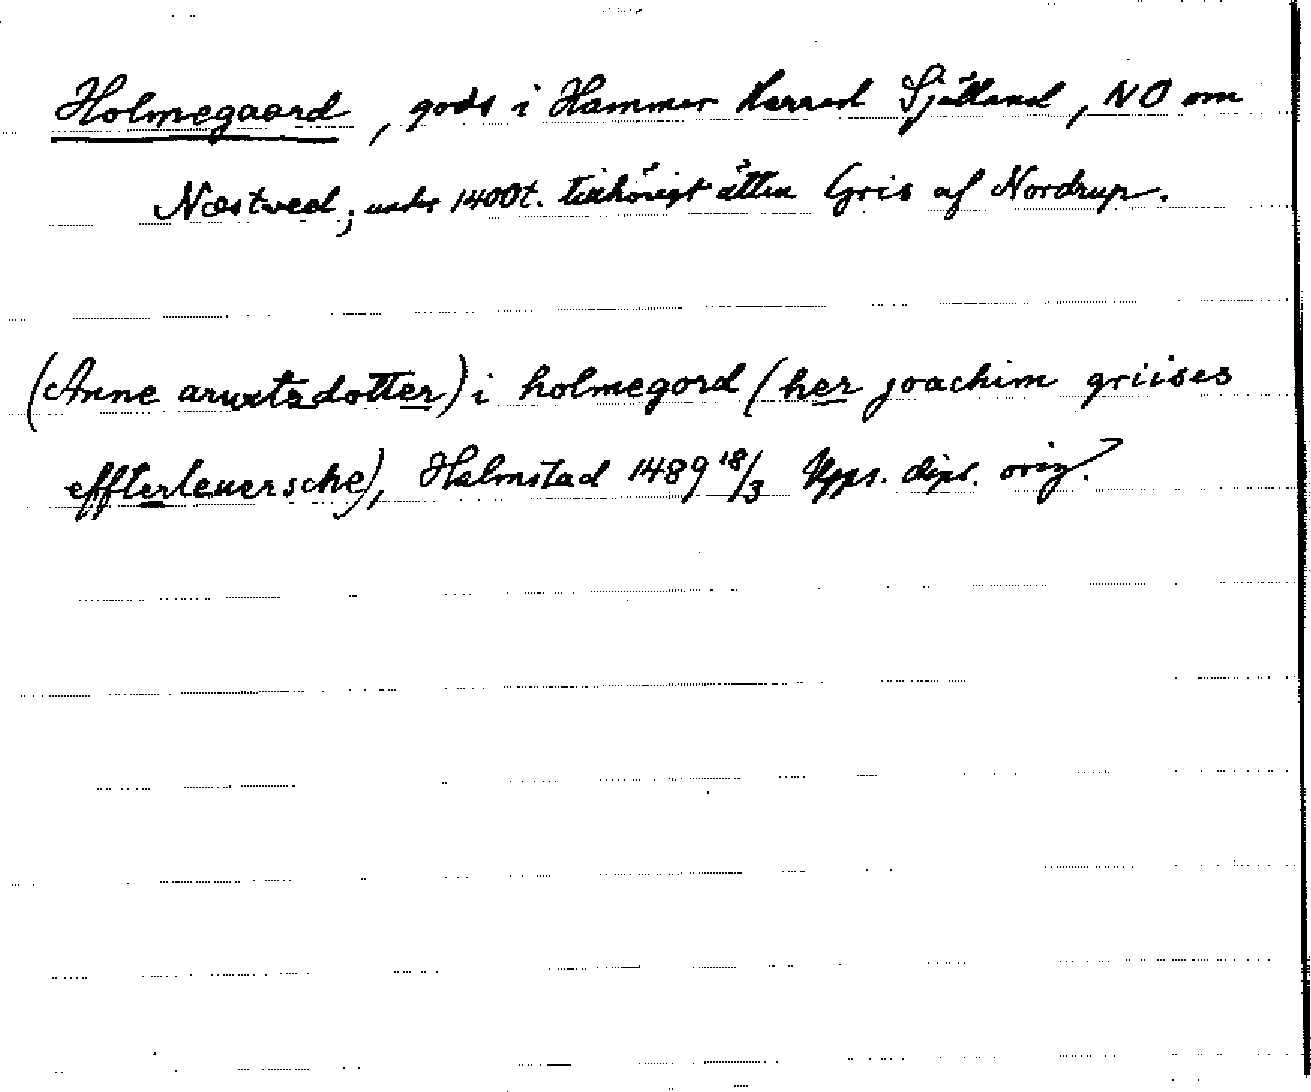 Holmegaard, gods i Hammer Herred Själland, NO om
Næstved; under 1400t. tillhörigt ätten Gris af Nordrup.
(Anne aruxtzdotter) i holmegord (her joachim griises
effterleuersche), Halmstad 1489 18/3 Upps. dipl. orig.